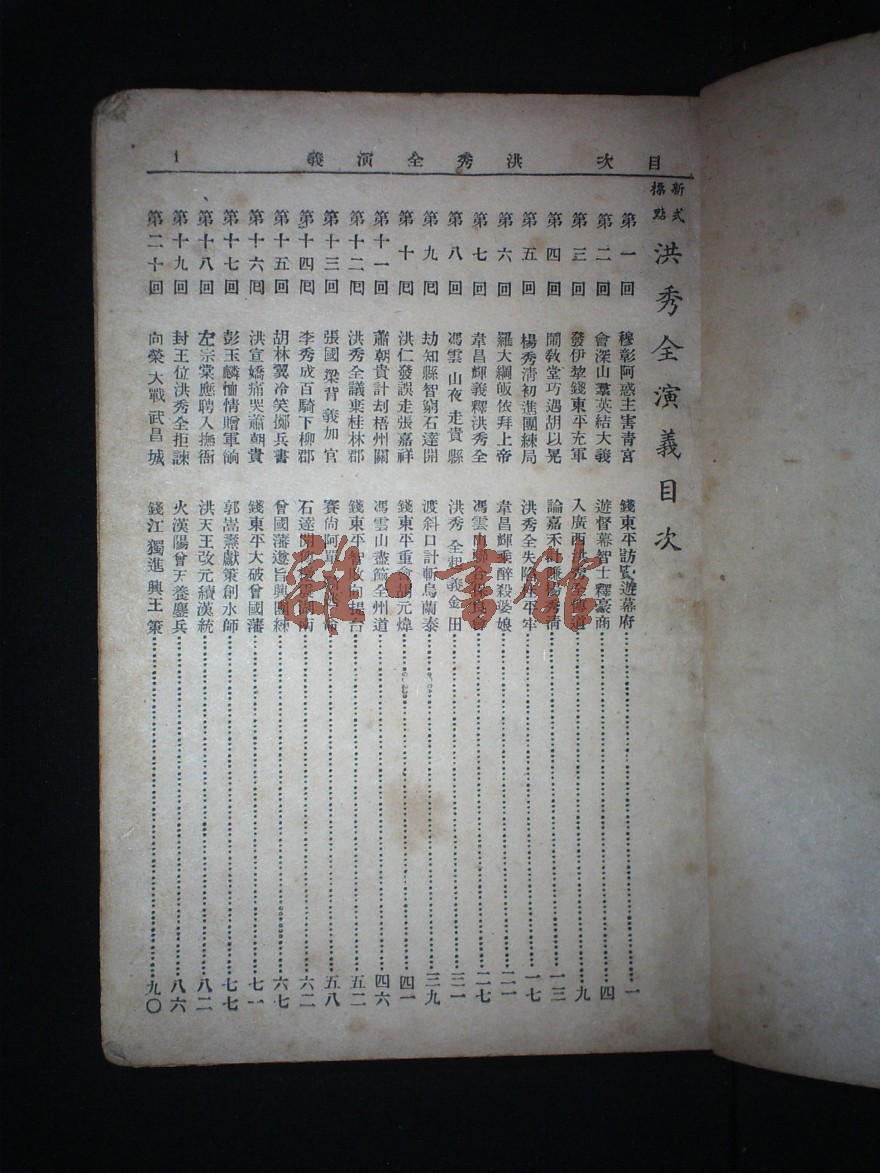 目次　洪秀全演義　1
新式標點　洪秀全演義目次
第一回　穆彰阿惑主害青宮　錢東平訪賢遊幕府……一
第二回　會深山羣英結大義　遊督幕智士釋豪商……四
第三回　發伊犂錢東平充軍　入廣西洪秀全傳道……九
第四回　鬧敎堂巧遇胡以晃　論嘉禾楊秀淸……一三
第五回　楊秀淸初進團練局　洪秀全失陷平牢……一七
第六回　羅大綱皈依拜上帝　韋昌輝乘醉殺婆娘……二一
第七回　韋昌輝義釋洪秀全　馮雲山聯合保良會……二七
第八回　馮雲山夜走貴縣　洪秀全起義金田……三一
第九回　劫知縣智窮石達開　渡斜口計斬烏蘭泰……三九
第十回　洪仁發誤走張嘉祥　錢東平重會胡元煒……四一
第十一回　蕭朝貴計刦梧州關　馮雲山盡節全州道……四六
第十二回　洪秀全議棄桂林郡　錢東平智收向提台……五二
第十三回　張國梁背義加官　賽尙阿單……五八
第十四回　李秀成百騎下柳郡　石達開……南……六二
第十五回　胡林翼冷笑擲兵書　曾國藩遵旨興團練……六七
第十六回　洪宣嬌痛哭蕭朝貴　錢東平大破曾國藩……七一
第十七回　彭玉麟恤情贈軍餉　郭嵩燾獻策創水師……七七
第十八回　左宗棠應聘入撫衙　洪天王改元續漢統……八二
第十九回　封王位洪秀全拒諫　火漢陽曾天養鏖兵……八六
第二十回　向榮大戰武昌城　錢江獨進興王策……九〇
雜·書館